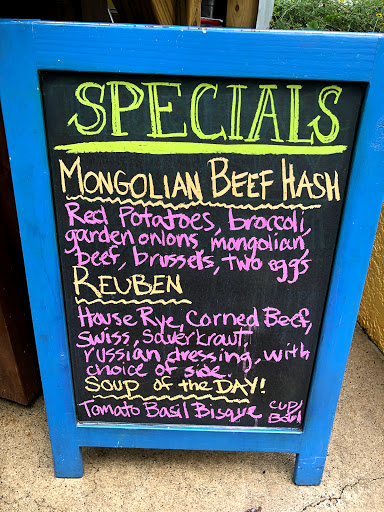 SPECIALS
MONGOLIAN BEEF HASH
Red Potatoes, broccoli,
garden onions, mongolian
beef, brussels, two eggs
REUBEN
House Rye, Corned Beef,
Swiss, Sauerkraut,
russian dressing, with
choice of side.
SOUP of the DAY!
Tomato Basil Bisque CUP/
BOWL